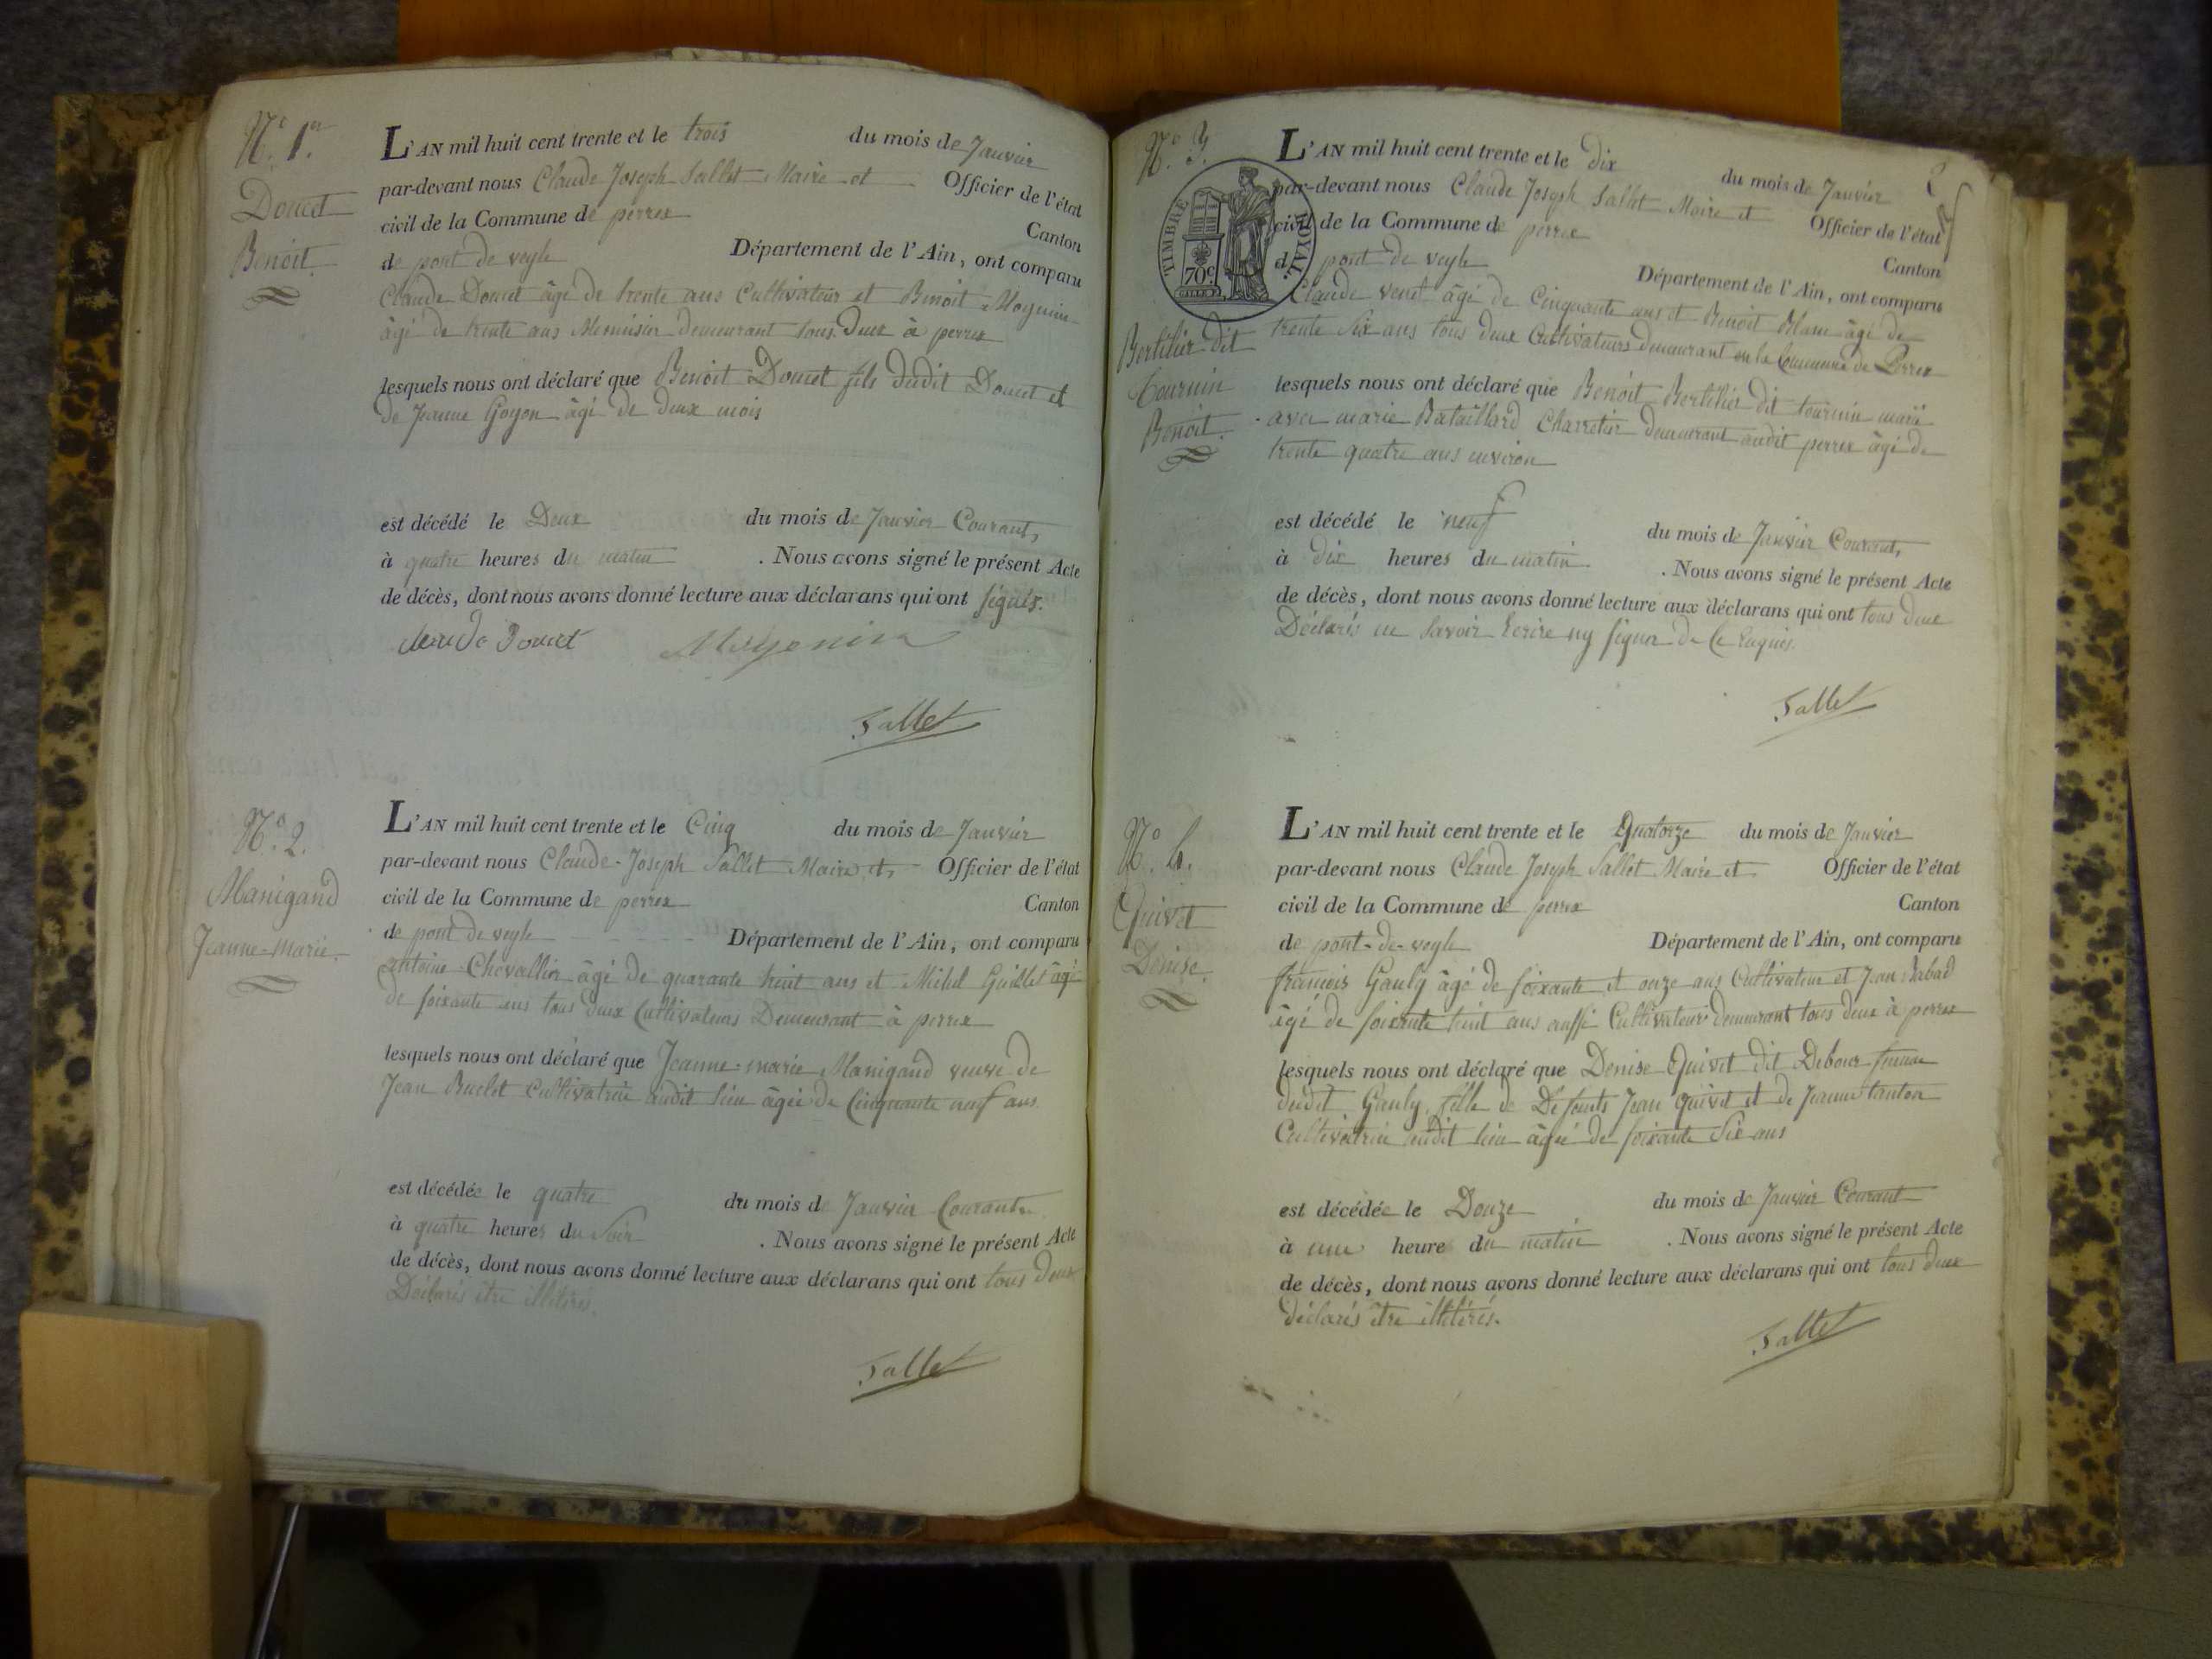 N.° 1.er
Doucet
Benoit.
L'AN mil huit cent trente et le trois du mois de Janvier
par-devant nous Claude Joseph Sallet Maire et Officier de l'état
civil de la Commune de perrex Canton
de pont de veyle Département de l'Ain, ont comparu
Claude Doucet âgé de trente ans Cultivateur et Benoit Moyonin
âgé de trente ans Menuisier demeurant tous deux à perrex
lesquels nous ont déclaré que Benoit Doucet fils dudit Doucet et
de Jeanne Goyon âgé de deux mois
est décédé le Deux du mois de Janvier Courant,
à quatre heures du matin . Nous avons signé le présent Acte
de décès, dont nous avons donné lecture aux déclarans qui ont signés.
Claude Doucet Moyonin
Sallet
N.° 2.
Manigand
Jeanne-Marie.
L'AN mil huit cent trente et le Cinq du mois de Janvier
par-devant nous Claude-Joseph Sallet Maire et Officier de l'état
civil de la Commune de perrex Canton
de pont de veyle Département de l'Ain, ont comparu
antoine Chevallier âgé de quarante huit ans et Michel Guillet âgé
de soixante ans tous deux Cultivateurs Demeurant à perrex
lesquels nous ont déclaré que Jeanne-marie Manigand veuve de
Jean Buclet Cultivatrice audit lieu âgée de Cinquante neuf ans
est décédée le quatre du mois de Janvier Courant
à quatre heures du Soir . Nous avons signé le présent Acte
de décès, dont nous avons donné lecture aux déclarans qui ont tous deux
Déclarés être illitérés.
Sallet
2
N.° 3.
TIMBRE ROYAL.
70.c
Bertilier dit
tournin
Benoit.
L'AN mil huit cent trente et le dix du mois de Janvier
par-devant nous Claude Joseph Sallet Maire et Officier de l'état
civil de la Commune de perrex Canton
de pont de veyle Département de l'Ain, ont comparu
Claude venet âgé de Cinquante ans et Benoit Blanc âgé de
trente six ans tous deux Cultivateurs demeurant en la Commune de Perrex
lesquels nous ont déclaré que Benoit Bertilier dit tournin marié
avec marie Bataillard Charretier demeurant audit perrex âgé de
trente quatre ans environ
est décédé le neuf du mois de Janvier Courant,
à dix heures du matin . Nous avons signé le présent Acte
de décès, dont nous avons donné lecture aux déclarans qui ont tous deux
Déclarés ne Savoir Ecrire ny signer de Ce Enquis.
Sallet
N.° 4.
Quivet
Denise.
L'AN mil huit cent trente et le Quatorze du mois de Janvier
par-devant nous Claude Joseph Sallet Maire et Officier de l'état
civil de la Commune de perrex Canton
de pont-de-veyle Département de l'Ain, ont comparu
françois Gauly âgé de soixante et onze ans Cultivateur et Jean Rabad
âgé de soixante huit ans aussi Cultivateur demeurant tous deux à perrex
lesquels nous ont déclaré que Denise Quivet dit Debour femme
dudit Gauly, fille de Defunts Jean quivet et de Jeanne tanton
Cultivatrice audit lieu âgée de soixante Six ans
est décédée le Douze du mois de Janvier Courant
à une heure du matin . Nous avons signé le présent Acte
de décès, dont nous avons donné lecture aux déclarans qui ont tous deux
déclarés être illitérés.
Sallet